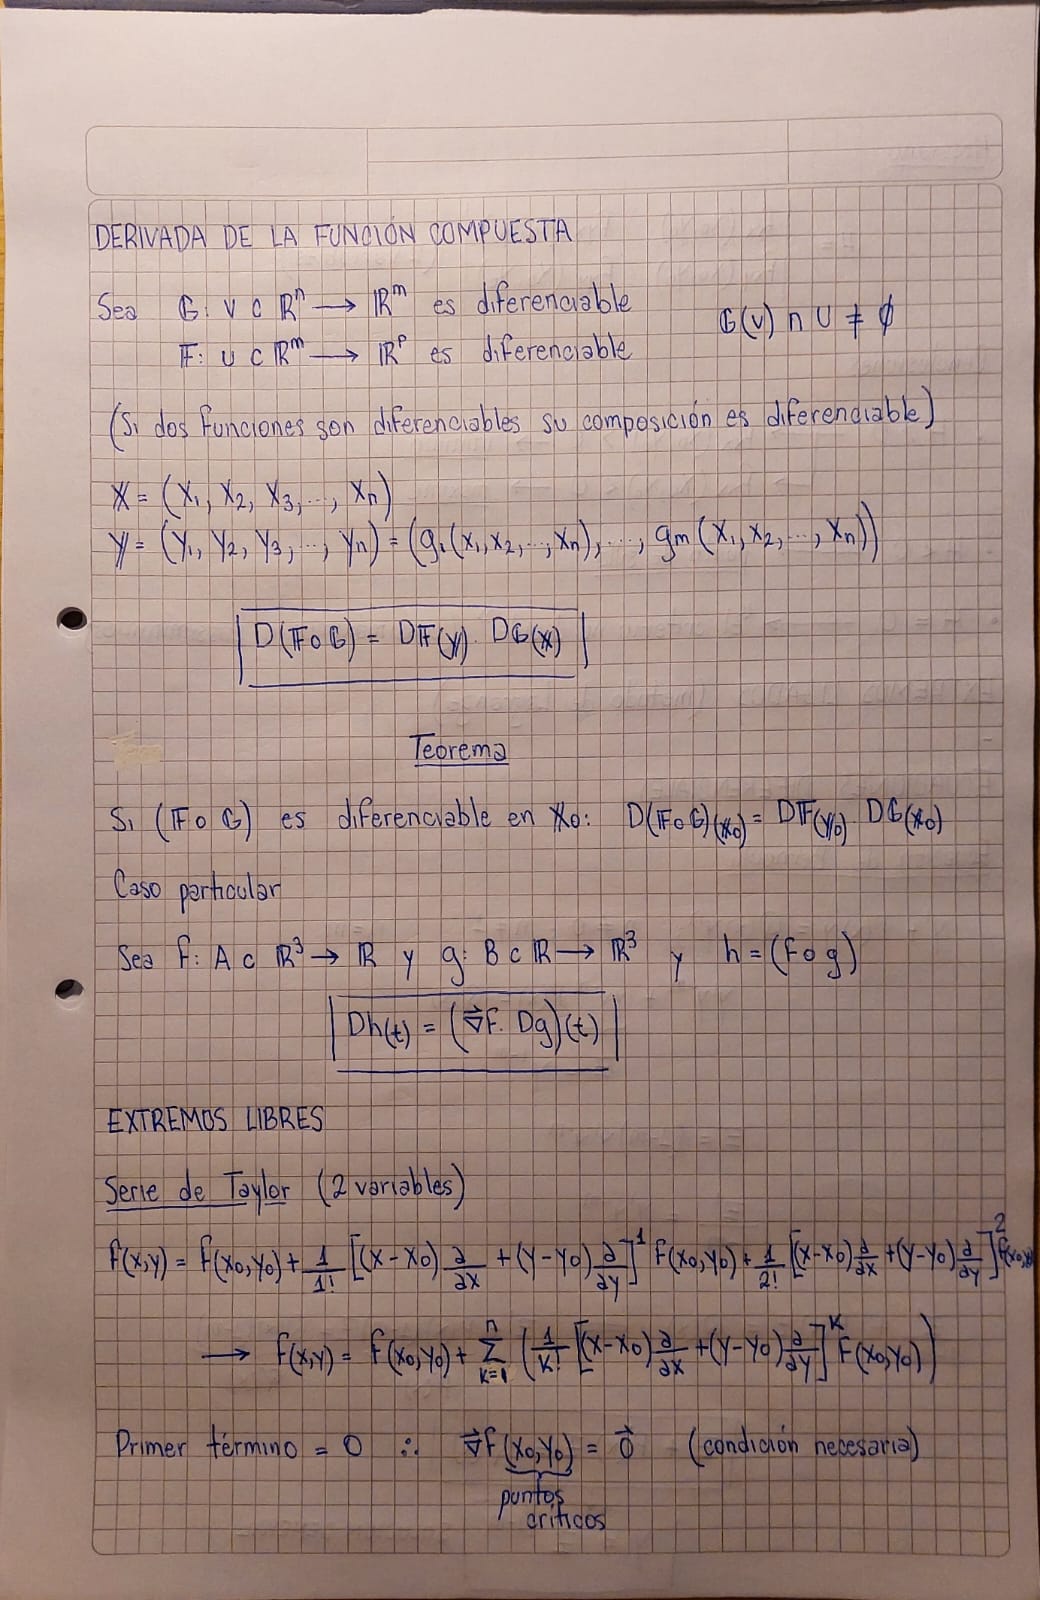 DERIVADA DE LA FUNCIÓN COMPUESTA
Sea G: V ⊂ ℝⁿ → ℝᵐ es diferenciable
G(V) ∩ U ≠ ∅
F: U ⊂ ℝᵐ → ℝᵖ es diferenciable
(Si dos funciones son diferenciables su composición es diferenciable)
X = (x₁, x₂, x₃, ..., xn)
Y = (y₁, y₂, y₃, ..., yn) = (g₁(x₁, x₂, ..., xn), ..., gm(x₁, x₂, ..., xn))
D(F∘G) = DF(Y) · DG(X)
Teorema
Si (F∘G) es diferenciable en X₀: D(F∘G)(X₀) = DF(Y₀) · DG(X₀)
Caso particular
Sea f: A ⊂ ℝ³ → ℝ y g: B ⊂ ℝ → ℝ³ y h = (f∘g)
Dh(t) = (∇⃗f · Dg)(t)
EXTREMOS LIBRES
Serie de Taylor (2 variables)
f(x,y) = f(x₀,y₀) + 1/1! [(x-x₀) ∂/∂x + (y-y₀) ∂/∂y]¹ f(x₀,y₀) + 1/2! [(x-x₀) ∂/∂x + (y-y₀) ∂/∂y]² f(x₀,y₀)
→ f(x,y) = f(x₀,y₀) + Σ k=1 n (1/k! [(x-x₀) ∂/∂x + (y-y₀) ∂/∂y]ᵏ f(x₀,y₀))
Primer término = 0 ∴ ∇⃗f(x₀,y₀) = 0⃗ (condición necesaria)
puntos
críticos